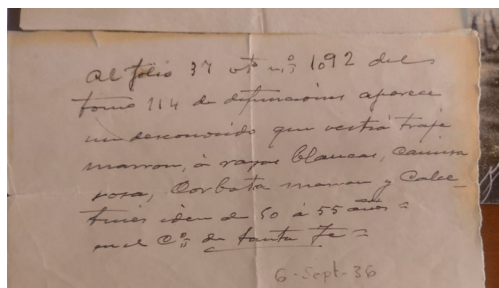 Al folio 37 vtº nº 1092 del
tomo 114 de difunciones aparece
un desconocido que vestía traje
marron, á rayas blancas, camisa
rosa, Corbata marron y Calce-
tines idem de 50 á 55 años =
en el Cº de Santa Fe =
6-Sept-36